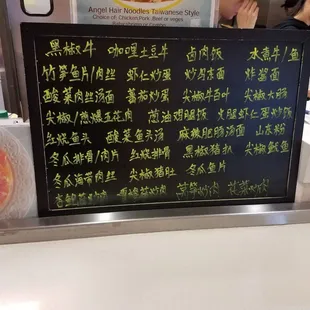 Angel Hair Noodles Taiwanese Style
Choice of: Chicken, Pork, Beef or Veges
黑椒牛 咖哩土豆牛 卤肉饭 水煮牛/鱼
竹笋鱼片/肉丝 虾仁炒蛋 炒肉冻面 炸酱面
酸菜肉丝汤面 蕃茄炒蛋 尖椒牛百叶 尖椒大肠
尖椒/五花肉 葱油鸡腿饭 火腿虾仁炒饭
红烧鱼头 酸菜鱼头汤 麻辣肥肠汤面 山东粉
冬瓜排骨/肉片 红烧排骨 黑椒猪扒 尖椒鱿鱼
冬瓜海带肉丝 尖椒猪肚 尖椒鱼片
炒肉